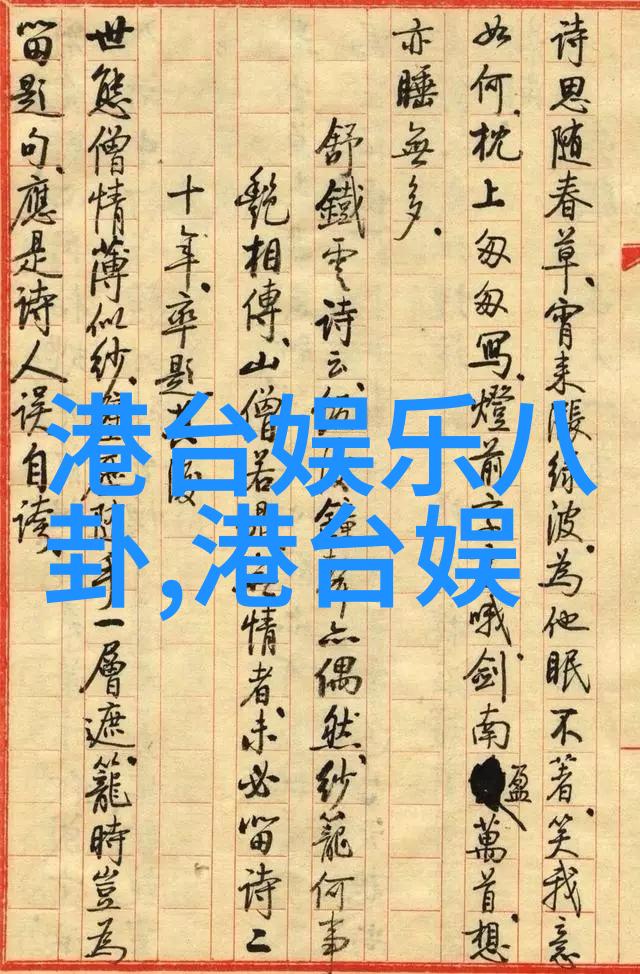 诗思随春草、宵来漲绿波、為他眠不著、笑我意
如何、枕上匆匆寫、燈前字字哦、剑南盈萬首、想
亦睡無多、
舒鐵雲诗云、鐘聲亦偶然、纱籠何事
艷相傳、山僧若是情者、未必留诗二
十年、率题其後
世態僧情薄似纱、一層遮、籠時豈為
留题句、應是诗人误自誇、
港台娱乐八
卦,港台娱